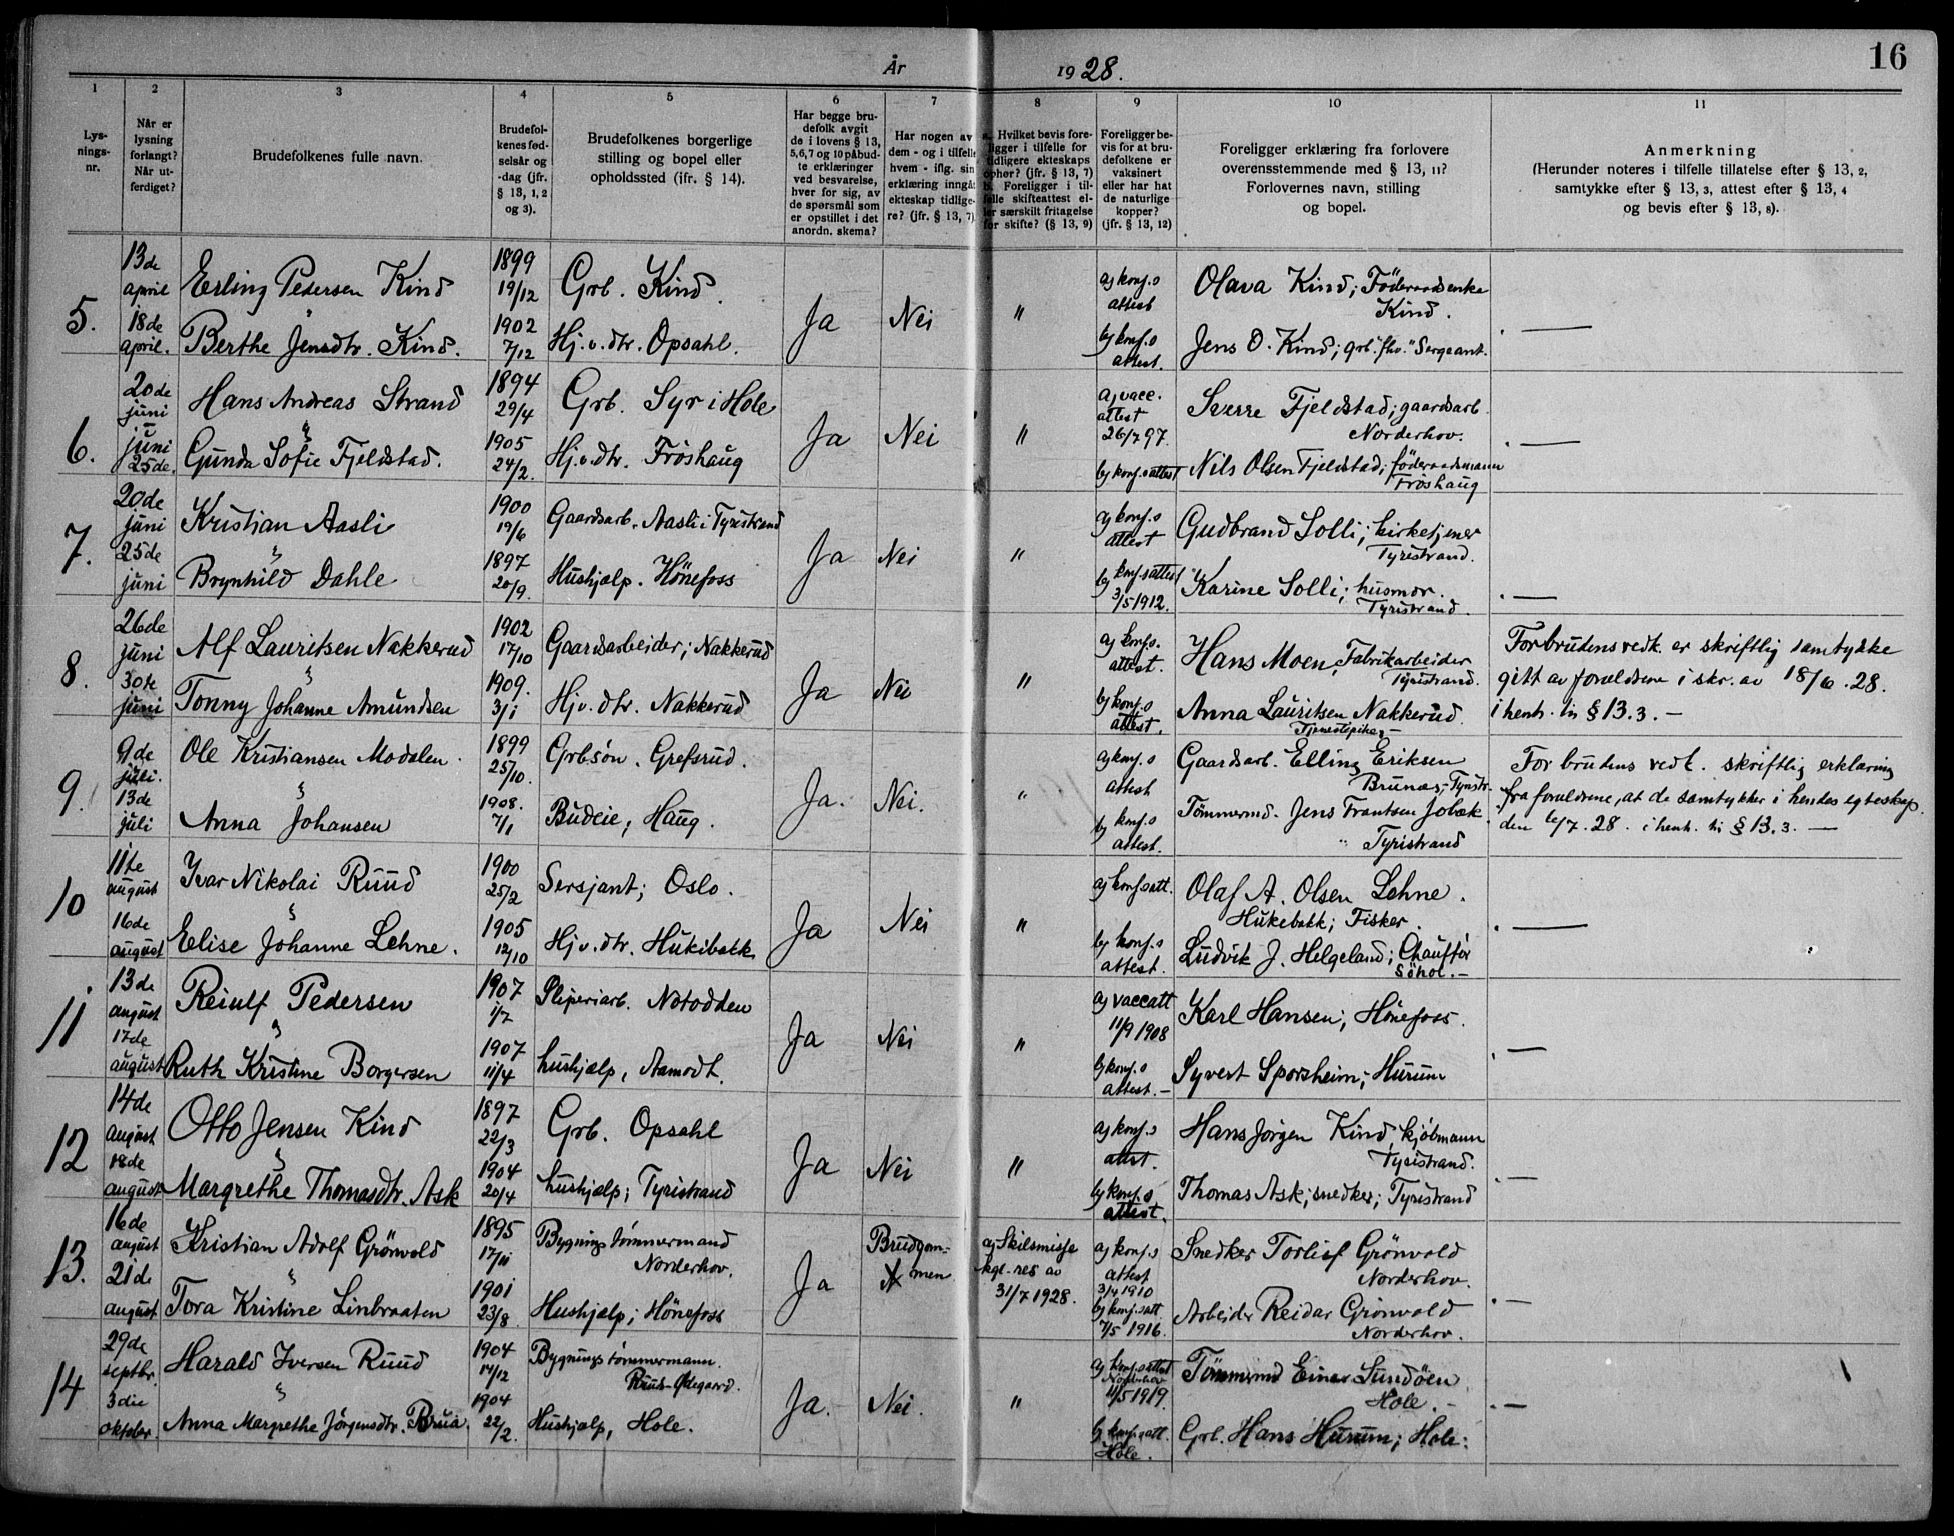 16
År 1928.
1 2 3 4 5 6 7 8 9 10 11
Lys-
nings-
nr.
Når er
lysning
forlangt?
Når ut-
ferdiget?
Brudefolkenes fulle navn.
Brudefol-
kenes fød-
selsår og
-dag (jfr.
§ 13, 1, 2
og 3).
Brudefolkenes borgerlige
stilling og bopel eller
opholdssted (jfr. § 14).
Har begge bru-
defolk avgit
de i lovens § 13,
5,6,7 og 10 påbud-
te erklæringer
ved besvarelse,
hver for sig, av
de spørsmål som
er opstillet i det
anordn. skema?
Har nogen av
dem - og i tilfelle
hvem - iflg. sin
erklæring inngått
ekteskap tidlige-
re? (jfr. § 13, 7)
a. Hvilket bevis fore-
ligger i tilfelle for
tidligere ekteskaps
ophør? (jfr. § 13, 7)
b. Foreligger i til-
felle skifteattest el-
ler særskilt fritagelse
for skifte? (§ 13, 9)
Foreligger be-
vis for at bru-
defolkene er
vaksinert
eller har hat
de naturlige
kopper?
(jfr. § 13, 12)
Foreligger erklæring fra forlovere
overensstemmende med § 13, 11?
Forlovernes navn, stilling
og bopel.
Anmerkning
(Herunder noteres i tilfelle tillatelse efter § 13, 2,
samtykke efter § 13, 3, attest efter § 13, 4
og bevis efter § 13, 8).
5.
13de
april
18de
april.
Erling Pedersen Kind
"
Berthe Jensdtr. Kind.
1899
19/12
1902
7/12
Grb. Kind.
Hj.v.dtr. Opsahl.
Ja
Nei
"
a) konf.s
attest
b) konf.s
attest.
Olava Kind; Föderaadsenke
Kind.
Jens O. Kind; grb. "fhv." Sergeant.
—
6.
20de
juni
juni
25de.
Hans Andreas Strand
Gunda Sofie Fjeldstad.
1894
29/4
1905
24/2.
Grb. Syr i Hole
Hj.v.dtr. Fröshaug
Ja
Nei
"
a) vacc.
attest
26/7 97.
b) konf.sattest
Sverre Fjeldstad; gaardsarb.
Norderhov.
Nils Olsen Fjeldstad; föderaadsmann
Fröshaug
—
7.
20de
juni
25de
juni
Kristian Aasli
Brynhild Dahle
1900
19/6
1897
20/9.
Gaardsarb. Aasli i Tyristrand
Hushjælp. Hönefoss
Ja
Nei
"
a) konf.s
attest
b) konf.sattest
3/5 1912.
Gudbrand Solli; kirketjener
Tyristrand.
Karine Solli; husmor.
Tyristrand.
—
8.
26de
juni
30te
juni
Alf Lauritsen Nakkerud
Tonny Johanne Amundsen
1902
17/10
1909.
3/1
Gaardsarbeider; Nakkerud
Hj.v.dtr. Nakkerud
Ja
Nei
"
a) konf.s.
attest.
b) konf.s
attest.
Hans Moen, Fabrikarbeider
Tyristrand.
Anna Lauritsen Nakkerud.
Tjenestepike,—
For brudens vedk. er skriftlig samtykke
gitt av foreldrene i skr. av 18/6. 28.
i henh. til § 13. 3. —
9.
9de
juli.
13de
juli
Ole Kristiansen Modalen.
Anna Johansen
1899
25/10.
1908.
7/1
Grbsön. Grefsrud.
Budeie; Haug.
Ja.
Nei.
"
a) konf.s
attest
b) konf.s
attest.
Gaardsarb. Elling Eriksen
Brunæs,—Tyristr.
Tömmermd. Jens Frantsen Jobæk.
" Tyristrand
For brudens vedk. skriftlig erklæring
fra foreldrene, at de samtykker i hendes egteskap.
den 6/7. 28. i henh. til § 13. 3. —
10
11te
august
16de
august
Ivar Nikolai Ruud
Elise Johanne Lehne.
1900
25/2
1905
12/10
Sersjant; Oslo.
Hj.v.dtr. Hukibakk
Ja
Nei
"
a) konf.satt.
b) konf.s
attest.
Olaf A. Olsen Lehne.
Hukebakk; Fisker.
Ludvik J. Helgeland; Chaufför
Sönol.—
—
11
13de
august
17de
august
Reiulf Pedersen
Ruth Kristine Borgersen
1907
1/7
1907
11/4
Sliperiarb. Notodden
hushjælp, Aamodt.
Ja
Nei
"
a) vaccatt
11/9 1908
b) konf.s
attest.—
Karl Hansen; Hönefoss.
Syvert Sporsheim; Hurum
—
12
14de
august
18de
august
Otto Jensen Kind
Margrethe Thomasdtr. Ask
1897
22/3
1904
20/4
Grb. Opsahl
hushjælp; Tyristrand
Ja
Nei
"
a) konf.s
attst.
b) konf.s
attest.
Hans Jörgen Kind, kjöbmann
Tyristrand.
Thomas Ask; snedker; Tyristrand
—
13.
16de
august
21de
august
Kristian Adolf Grönvold
Tora Kristine Linbraaten
1895
17/11
1901
23/8
Bygningstömmermand
Norderhov.
Hushjælp; Hönefoss
Ja
Brudgom-
men
a) Skilsmisse
kgl. res av
31/7 1928.
a) konf.s
attest
3/4 1910
b) konf.satt
7/5 1916.
Snedker Torlief Grönvold
Norderhov.
Arbeider Reidar Grönvold
Norderhov.
—
14
29de
septbr.
3die
oktober.
Harald Iversen Ruud
Anna Margrethe Jörgensdtr. Brua.
1904
14/12
1904
22/2.
Bygningstömmermann.
Ruud-Ødegaard.
Hushjælp, Hole.
Ja.
Nei.
"
a) konf.sattest
Norderhov
11/5 1919.
b) konf.s att.
Hole.
Tömmermd Einar Sundöen
Hole.—
Grb. Hans Hurum; Hole.
—